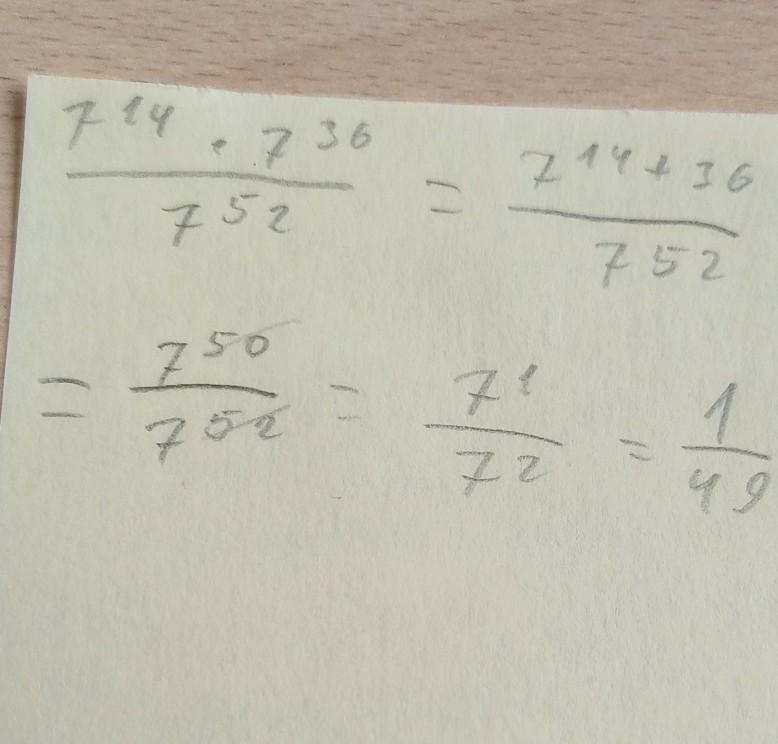 7¹⁴ · 7³⁶ / 7⁵² = 7¹⁴⁺³⁶ / 7⁵²
= 7⁵⁰ / 7⁵² = 7¹ / 7² = 1 / 49